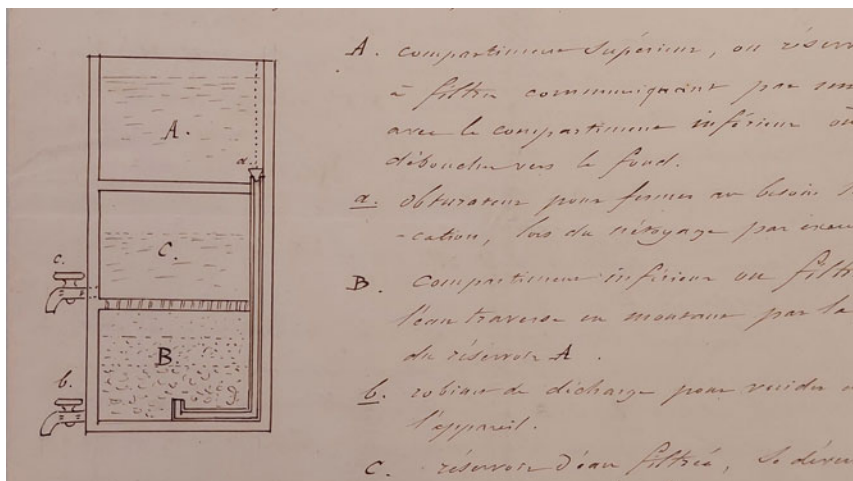 A.
a.
C.
c.
B.
b.
A. compartiment supérieur, ou réserv
à filtre communiquant par un
avec le compartiment inférieur où
débouche vers le fond.
a. obturateur pour fermer au besoin l
-cation, lors du nétoyage par
B. compartiment inférieur ou filtr
l'eau traverse en montant par la
du réservoir A.
b. robinet de décharge pour vuider
l'appareil.
C. réservoir d'eau filtrée, se déver